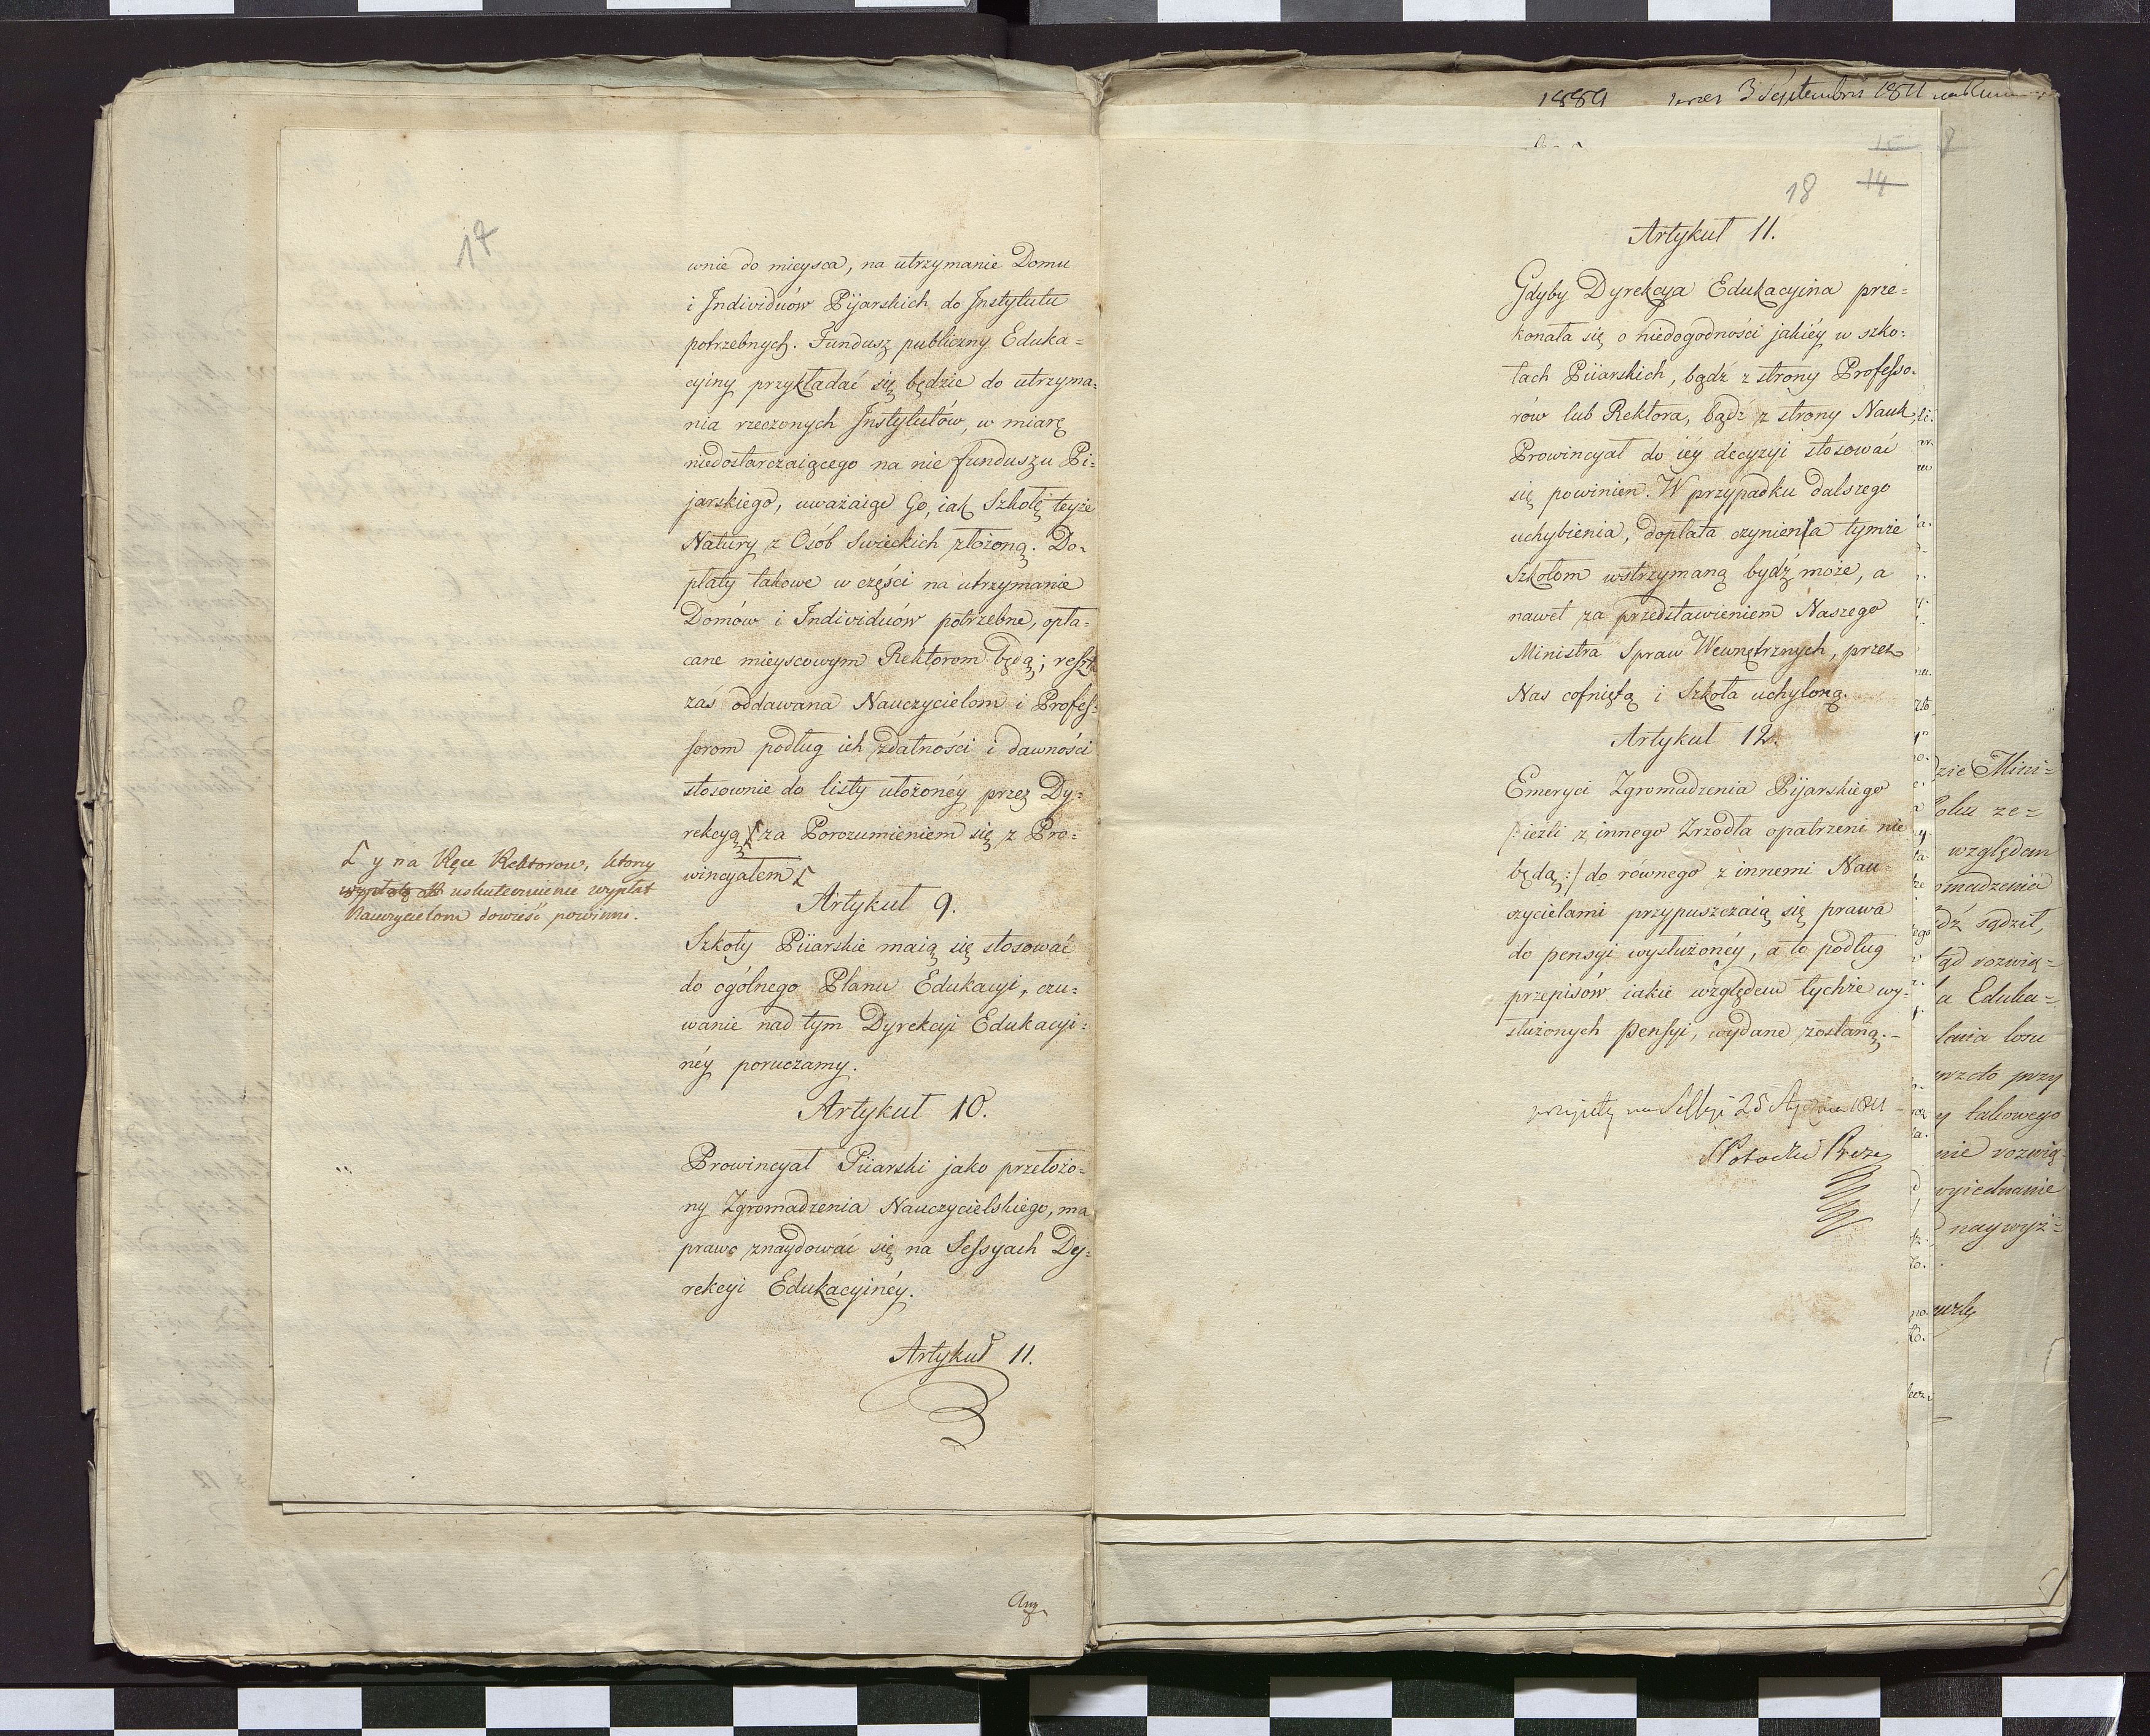 17
wnie do mieysca, na utrzymanie Domu
i Individuów Pijarskich do Instytutu
potrzebnych. Fundusz publiczny Eduka=
cyiny przykładać się będzie do utrzyma=
nia rzeczonych Instytutów, w miarę
niedostarczaiącego na nie funduszu Pi=
jarskiego, uważaiąc Go, iak Szkołę teyże
Natury z Osób Swieckich złożoną. Do=
płaty takowe w części na utrzymanie
Domów i Individuów potrzebne, opła=
cane mieyscowym Rektorom będą; reszta
zaś oddawana Nauczycielom i Profes=
sorom podług ich zdatności i dawności
stosownie do listy ułożonéy przez Dy=
rekcyą za Porozumieniem się z Pro=
wincyałem
y na Ręce Rektorow, ktory
wypłatę uskutecznienie wypłat
Nauczycielom dowieść powinni.
Artykuł 9.
Szkoły Piiarskie maią się stosować
do ogólnego Planu Edukacyi, czu=
wanie nad tym Dyrekcyi Edukacyi=
néy poruczamy.
Artykuł 10.
Prowincyał Piiarski jako przełożo=
ny Zgromadzenia Nauczycielskiego, ma
prawo znaydować się na Sessyach Dy=
rekcyi Edukacyinéy.
Artykuł 11.
1889 3 Septembris 1811
18 14
Artykuł 11.
Gdyby Dyrekcya Edukacyina prze=
konała się o niedogodności jakiéy w szko=
łach Piiarskich, bądź z strony Professo=
rów lub Rektora, bądź z strony Nauk,
Prowincyał do iéy decyzyi stosować
się powinien. W przypadku dalszego
uchybienia, dopłata czyniena tymże
Szkołom wstrzymaną bydź może, a
nawet za przedstawieniem Naszego
Ministra Spraw Wewnętrznych, przez
Nas cofniętą i Szkoła uchyloną.
Artykuł 12.
Emeryci Zgromadzenia Pijarskiego
/: ieżli z innego Zrzodła opatrzeni nie
będą :/ do równego z innemi Nau=
czycielami przypuszczaią się prawa
do pensyi wysłużonéy, a to podług
przepisów iakie względem tychże wy=
służonych pensyi, wydane zostaną.
przyięty na Sessyi 25 Stycznia 1811
S Potocki Prezes
dzie Mini=
względem
omadzenia
sądził,
rozwią=
Eduka=
losu
przeto przy
takowego
rozwią=
wyiednanie
naywyż=